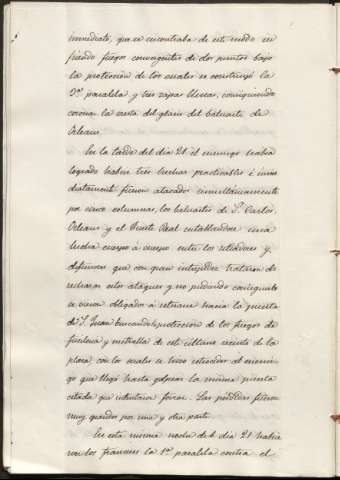 inmediato, que se encontraba de este modo su
friendo fuegos convergentes de dos puntos bajo
la protección de los cuales se construyó la
3ª paralela y tres zapas llenas, consiguiendo
coronar la cresta del glacis del baluarte de
Orleans.
En la tarde del día 21 el enemigo había
logrado haber tres brechas practicables é inme
diatamente fueron atacados simultáneamente
por cinco columnas, los baluartes de S. Carlos,
Orleans y el Fuerte Real entablándose una
lucha cuerpo á cuerpo entre los sitiadores y
defensores que con gran intrepidez trataron de
rechazar estos ataques y no pudiendo conseguirlo
se vieron obligados á retirarse hacia la puerta
de S. Juan buscando la protección de los fuegos de
fusilería y metralla de este último recinto de la
plaza con los cuales se hizo retroceder al enemi-
go que llegó hasta golpear la misma puerta
citada que intentaron forzar. Las pérdidas fueron
muy grandes por una y otra parte.
En esta misma noche del día 21 habrie
ron los franceses la 1ª paralela contra el